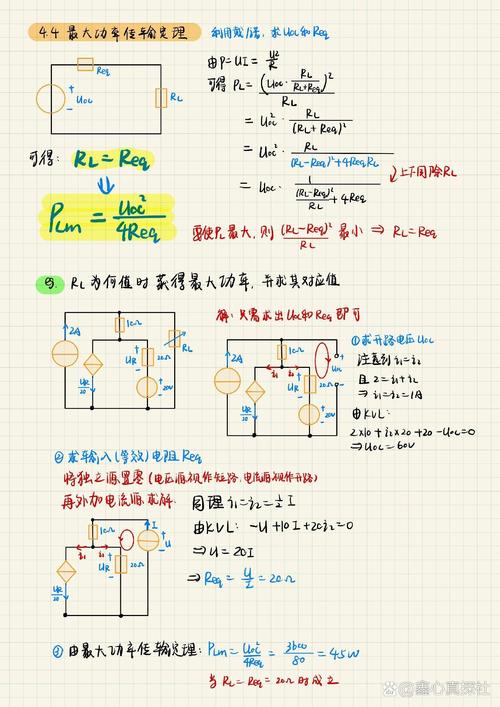 4.4 最大功率传输定理 利用戴/诺,求Uoc和Req
Req
+
Uoc
-
RL
由P=UI=U²/R
可得 PL=(Uoc·RL/(RL+Req))²/RL
=Uoc²·RL/(RL+Req)²
=Uoc²·RL/((RL-Req)²+4ReqRL)
=Uoc·1/((RL-Req)²/RL+4Req) 上下同除RL
可得: RL=Req
⇓
PLm=Uoc²/4Req
要使PL最大,则 (RL-Req)²/RL 最小 ⇒ RL=Req
例. RL为何值时获得最大功率,并求其对应值
解:只需求出Uoc和Req即可
2A
10Ω
RL
UR/20
+
UR
-
20Ω
+
20V
-
2A
10Ω
i1 i2
UR/20
+
UR
-
20Ω
+
20V
-
+
Uoc
-
①求开路电压Uoc
注意到 i1=i2
且 2=i1+i2
⇒ i1=i2=1A
由KVL:
2×10+i2×20+20-Uoc=0
⇒Uoc=60V
②求输入(等效)电阻Req
将独立源置零(电压源视作短路,电流源视作开路)
再外加电流源求解
10Ω
i1 i2
UR/20
+
UR
-
20Ω
I
+
U
-
同理 i1=i2=½I
由KVL: -U+10I+20i2=0
⇒U=20I
⇒Req=U/I=20Ω
③由最大功率传输定理: PLm=Uoc²/4Req=3600/80=45W
当RL=Req=20Ω时成立
@鑫心真探社